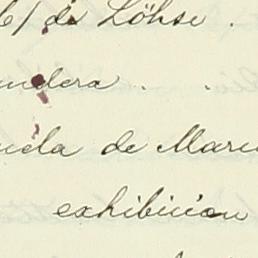 6/ de Löhse.
ndera . .
uela de Mari
exhibicion